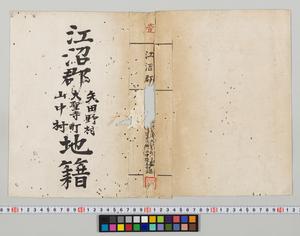 江沼郡
矢田野村
大聖寺町
山中村
地籍
壹
江沼郡